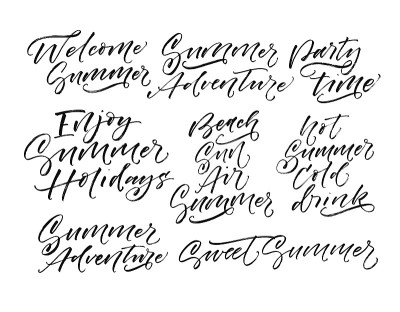 Welcome
Summer
Summer
Adventure
Party
time
Enjoy
Summer
Holidays
Beach
Sun
Air
Summer
hot
Summer
Cold
drink
Summer
Adventure
Sweet Summer